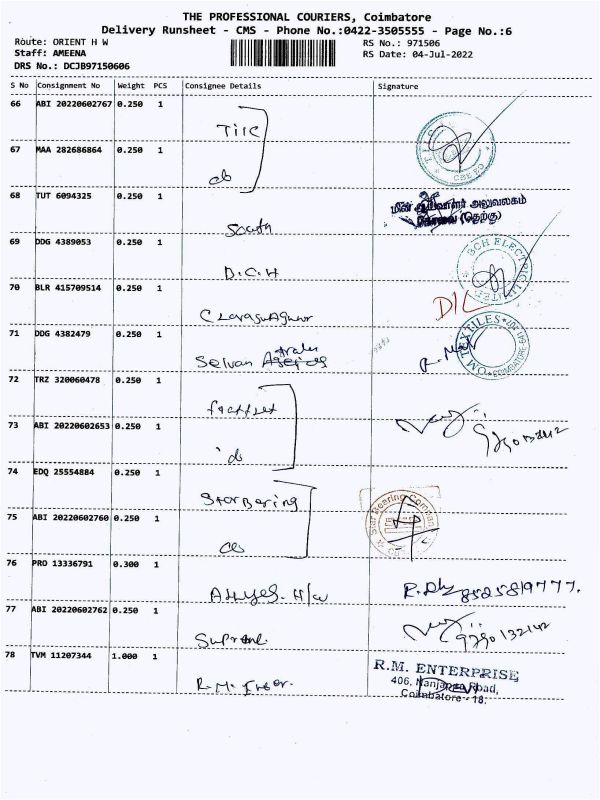 THE PROFESSIONAL COURIERS, Coimbatore
Delivery Runsheet - CMS - Phone No.:0422-3505555 - Page No.:6
Route: ORIENT H W RS No.: 971506
Staff: AMEENA RS Date: 04-Jul-2022
DRS No.: DCJB97150606
S No Consignment No Weight PCS Consignee Details Signature
66 ABI 20220602767 0.250 1
67 MAA 282686864 0.250 1
68 TUT 6094325 0.250 1 South
மின் அலுவலகம்
கோவை (தெற்கு)
69 DDG 4389053 0.250 1 B.C.H
BCH ELECTRIC LIMITED
70 BLR 415709514 0.250 1
71 DDG 4382479 0.250 1 Selvan
OM TEXTILES
72 TRZ 320060478 0.250 1
73 ABI 20220602653 0.250 1
74 EDQ 25554884 0.250 1 Star Bering
Star Bearing Company
75 ABI 20220602760 0.250 1
76 PRO 13336791 0.300 1 8525819777.
77 ABI 20220602762 0.250 1 9790132142
78 TVM 11207344 1.000 1
R.M. ENTERPRISE
406, Nanjappa Road,
Coimbatore - 18.